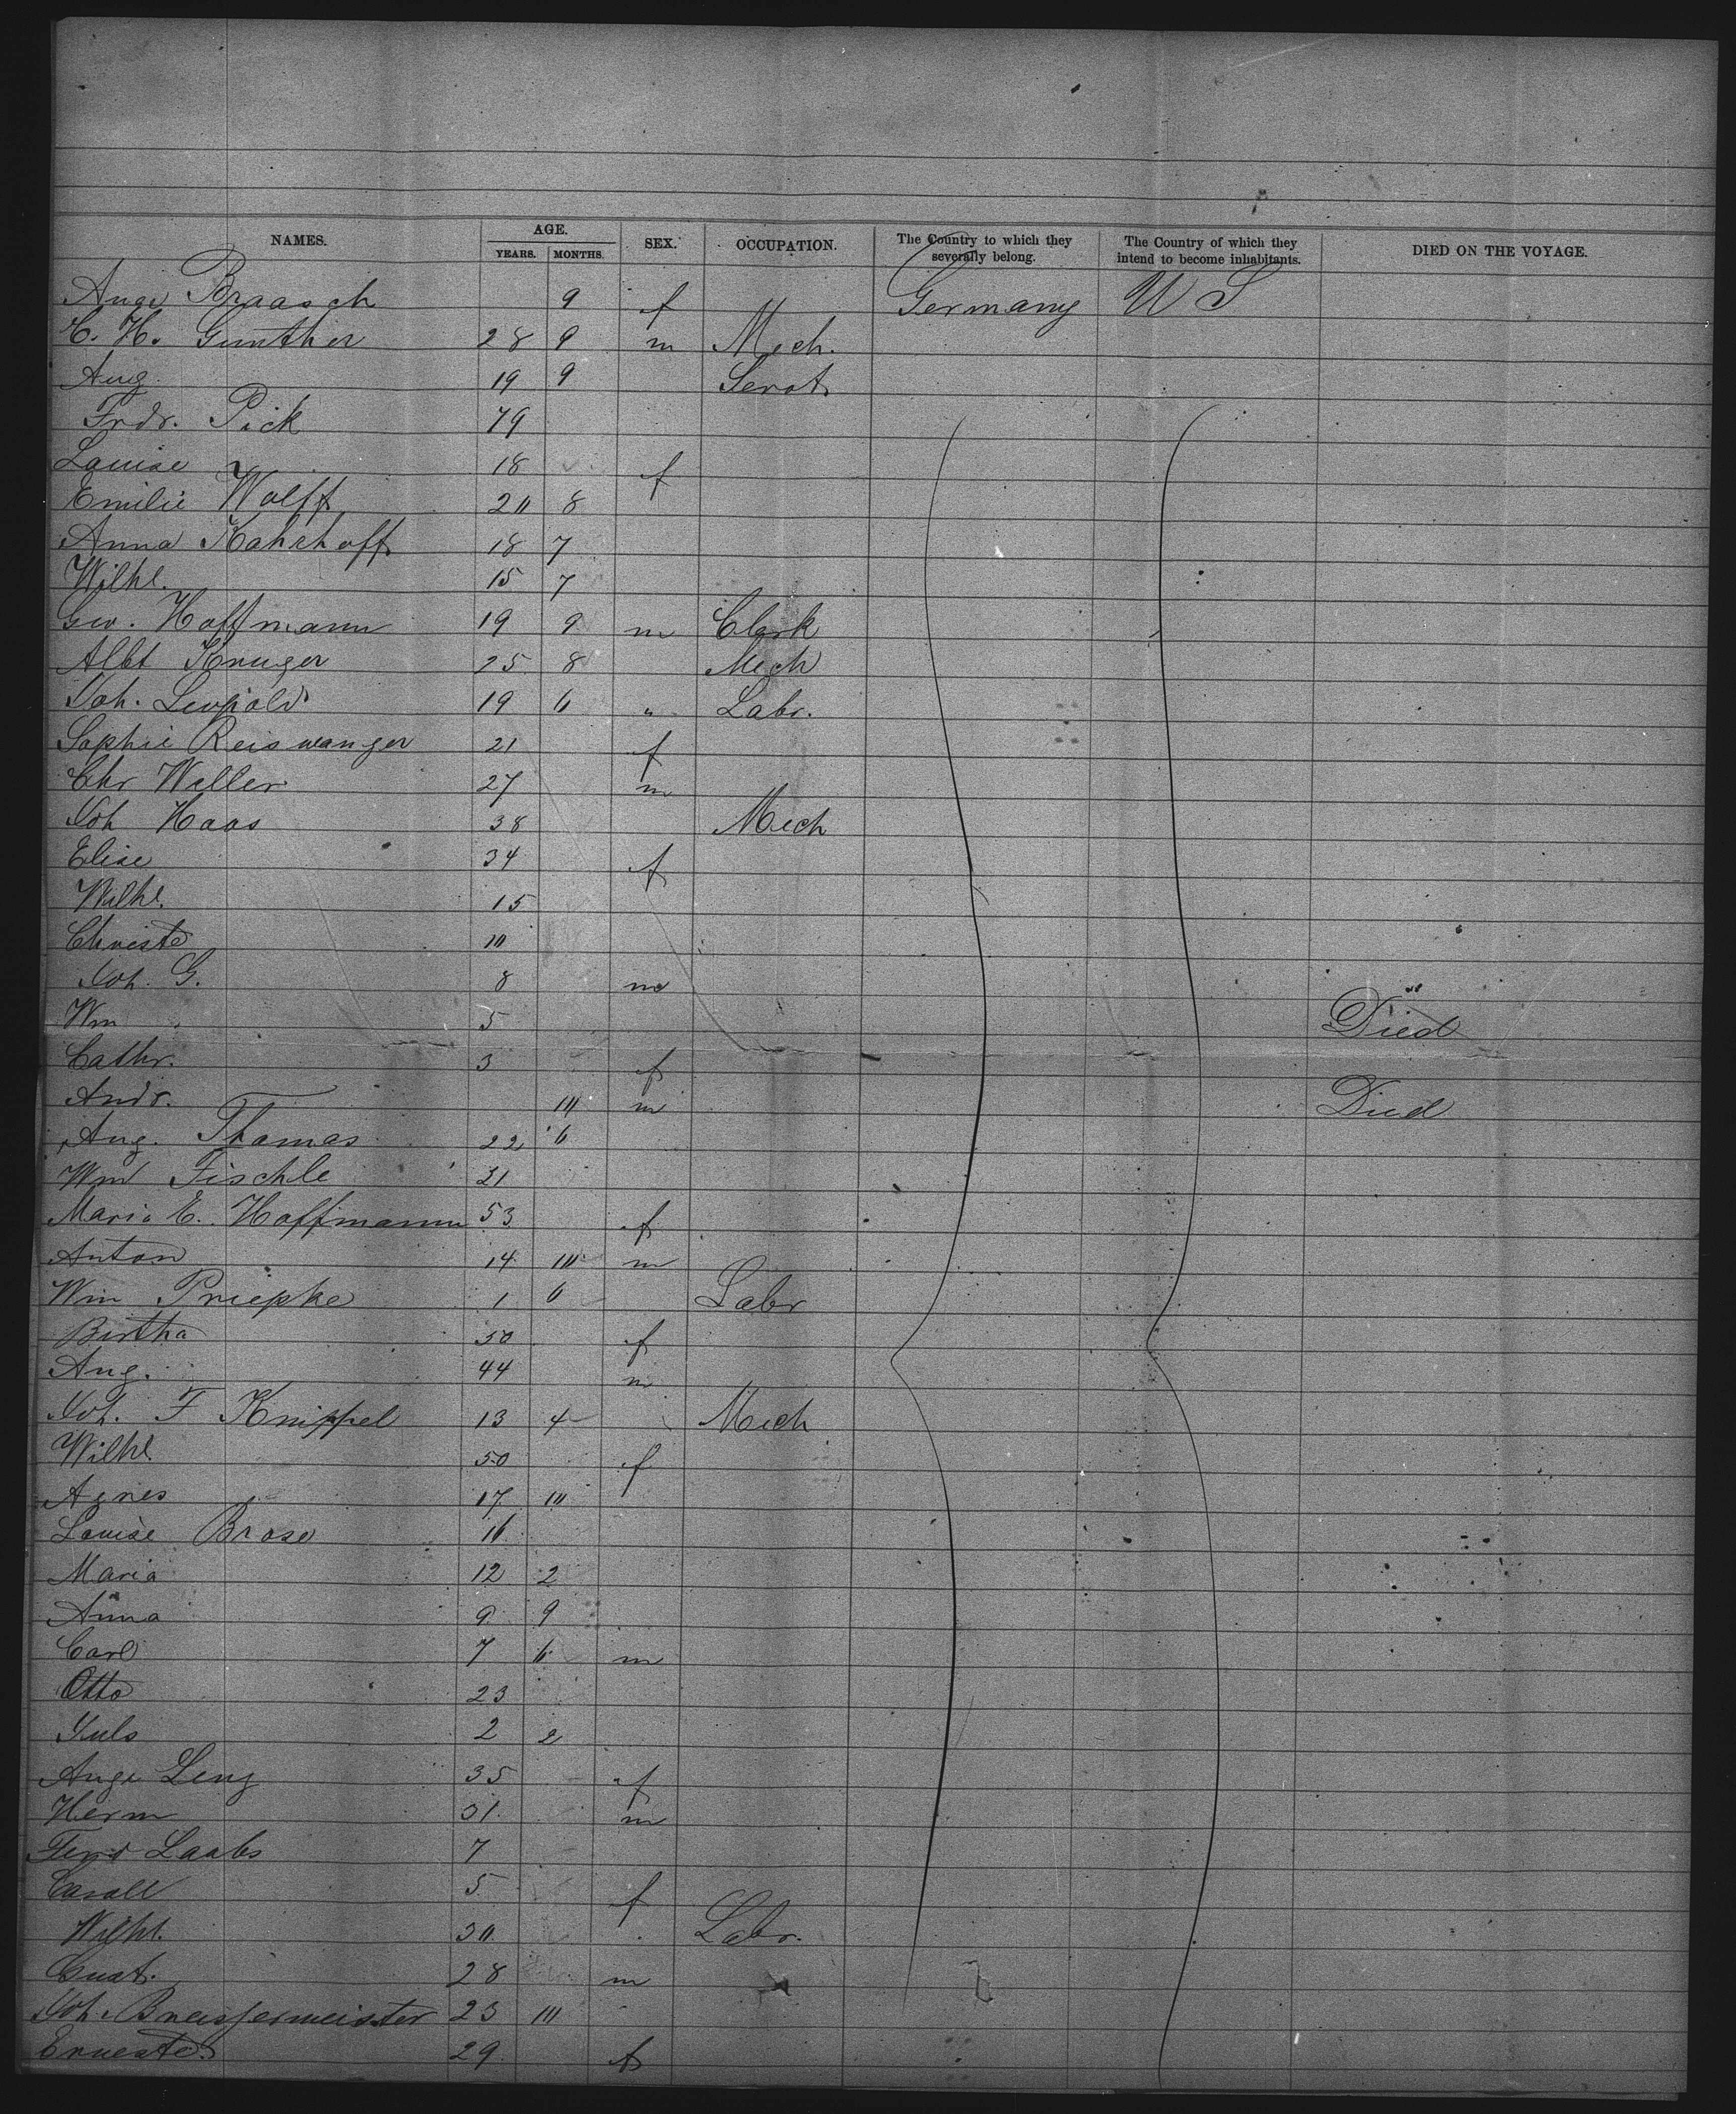 NAMES. AGE. SEX. OCCUPATION. The Country to which they severally belong. The Country of which they intend to become inhabitants. DIED ON THE VOYAGE.
YEARS. MONTHS.
Auge Braasch 9 f Germany U S
C. H. Gunther 28 9 m Mech.
Aug. 19 9 Servt
Frdr. Pick 79
Louise 18 f
Emilie Wolff 20 8
Anna Kahrhoff 18 7
Wilhl. 15 7
Geo. Hoffmann 19 9 m Clark
Albt Kruger 25 8 Mech
Joh. Leupold 19 6 " Labr.
Sophie Reiswanger 21 f
Chr Weller 27 m
Joh Haas 38 Mech
Elise 34 f
Wilhl. 15
Christe 10
Joh. G. 8 m
Wm 5 Died
Cathr. 3 f
Andr. 10 m Died
Aug. Thomas 22 6
Wm Fischle 21
Maria E. Hoffmann 53 f
Anton 14 10 m
Wm Priepke 1 6 Labr
Bertha 50 f
Aug. 44 m
Joh. F Knippel 13 4 Mech
Wilhl. 50 f
Agnes 17 10
Louise Brose 16
Maria 12 2
Anna 9 9
Carl 7 6 m
Otto 23
Juls 2 2
Auge Leng 35 f
Herm 31 m
Ferd Laabs 7
Caroll 5 f
Wilhl. 30 Labr.
Gust. 28 m
Joh. 23 10
Erneste 29 f